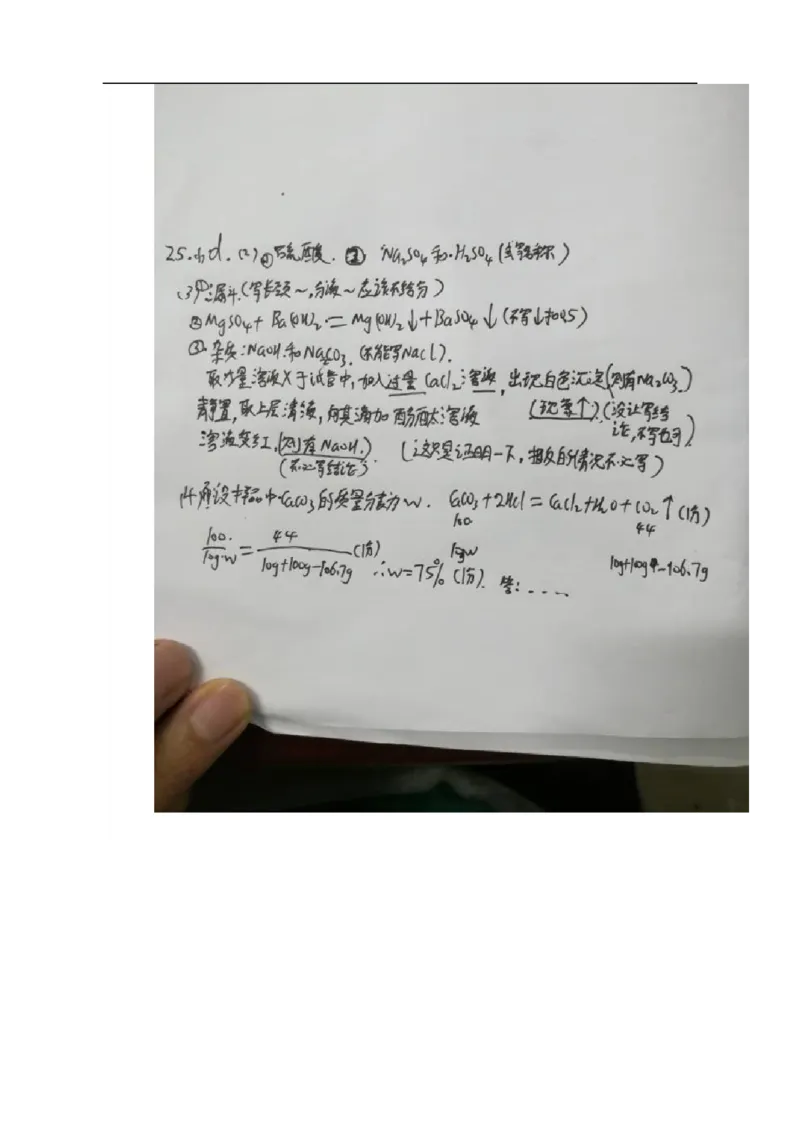 25.(1)d. (2)①硫酸. ② Na₂SO₄和H₂SO₄(或写名称)
(3)①漏斗.(写长颈~,分液~应该不给分)
②MgSO₄+Ba(OH)₂=Mg(OH)₂↓+BaSO₄↓(不写↓扣0.5)
③杂质:NaOH和Na₂CO₃.(不能写NaCl).
取少量溶液X于试管中,加入过量CaCl₂溶液,出现白色沉淀(则有Na₂CO₃.)
静置,取上层清液,向其滴加酚酞溶液 (现象↑)(没让写结
溶液变红.(则有NaOH.) (这只是证明一下,相反的情况不必写) 论,不写也可)
(不必写结论)
解设样品中CaCO₃的质量分数为w. CaCO₃+2HCl=CaCl₂+H₂O+CO₂↑(1分)
100 44
100/10g·w=44/10g+100g-106.7g(1分) 10gw 10g+100g-106.7g
∴w=75%(1分). 答:....